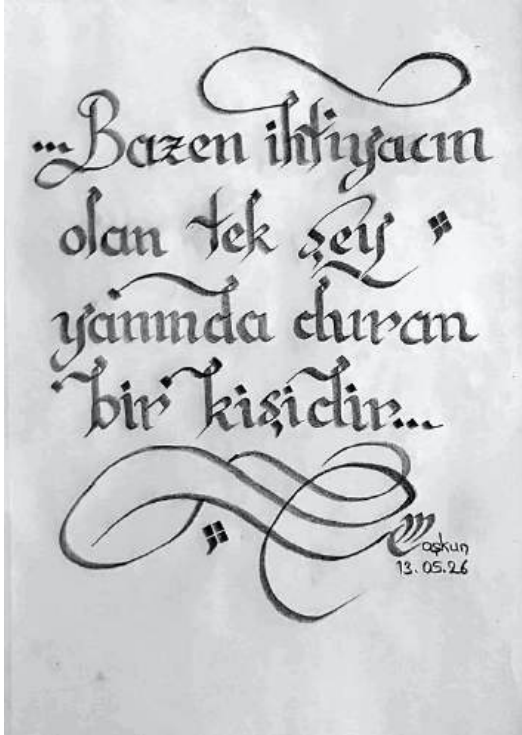 ...Bazen ihtiyacın
olan tek şey
yanında duran
bir kişidir...
Coşkun
13.05.26